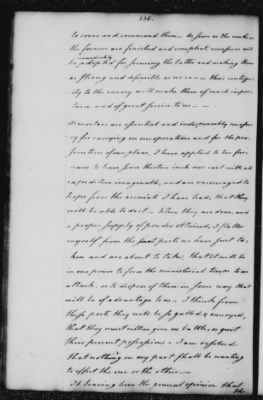 236.
to cover and command them. As soon as the works
the former are finished and compleat, measures will
immediately
be adopted for securing the latter and making them
as strong and defensible as we can. Their contigu-
ity to the enemy will make them of much impor-
tance and of great service to us.
As mortars are essential and indispensably necessary
for carrying on our operations and for the pro-
secution of our plans, I have applied to two fur-
naces to have some thirteen inch ones cast with all
expedition imaginable, and am encouraged to
hope from the accounts I have had, that they
will be able to do it. When they are done, and
a proper supply of powder obtained, I flatter
myself from the posts we have just ta-
ken and are about to take, that it will be
in our power to force the ministerial troops to an
attack, or to dispose of them in some way that
will be of advantage to us. I think from
these posts they will be so galled & annoyed,
that they must either give us battle, or quit
their present possessions. I am resolved
that nothing on my part shall be wanting
to effect the one or the other.
It having been the general opinion that